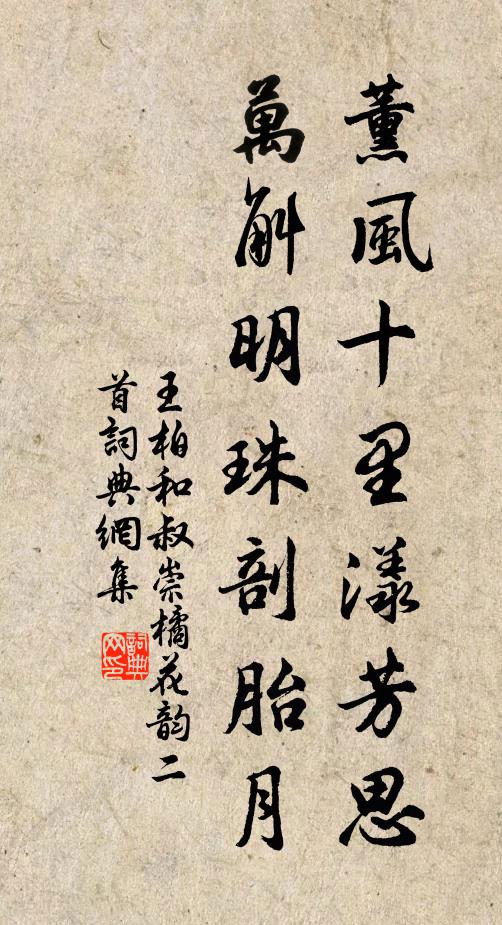 薰風十里漾芳思
萬斛明珠剖胎月
王柏和叔崇橘花韵二
首詞典網集
詞典網印